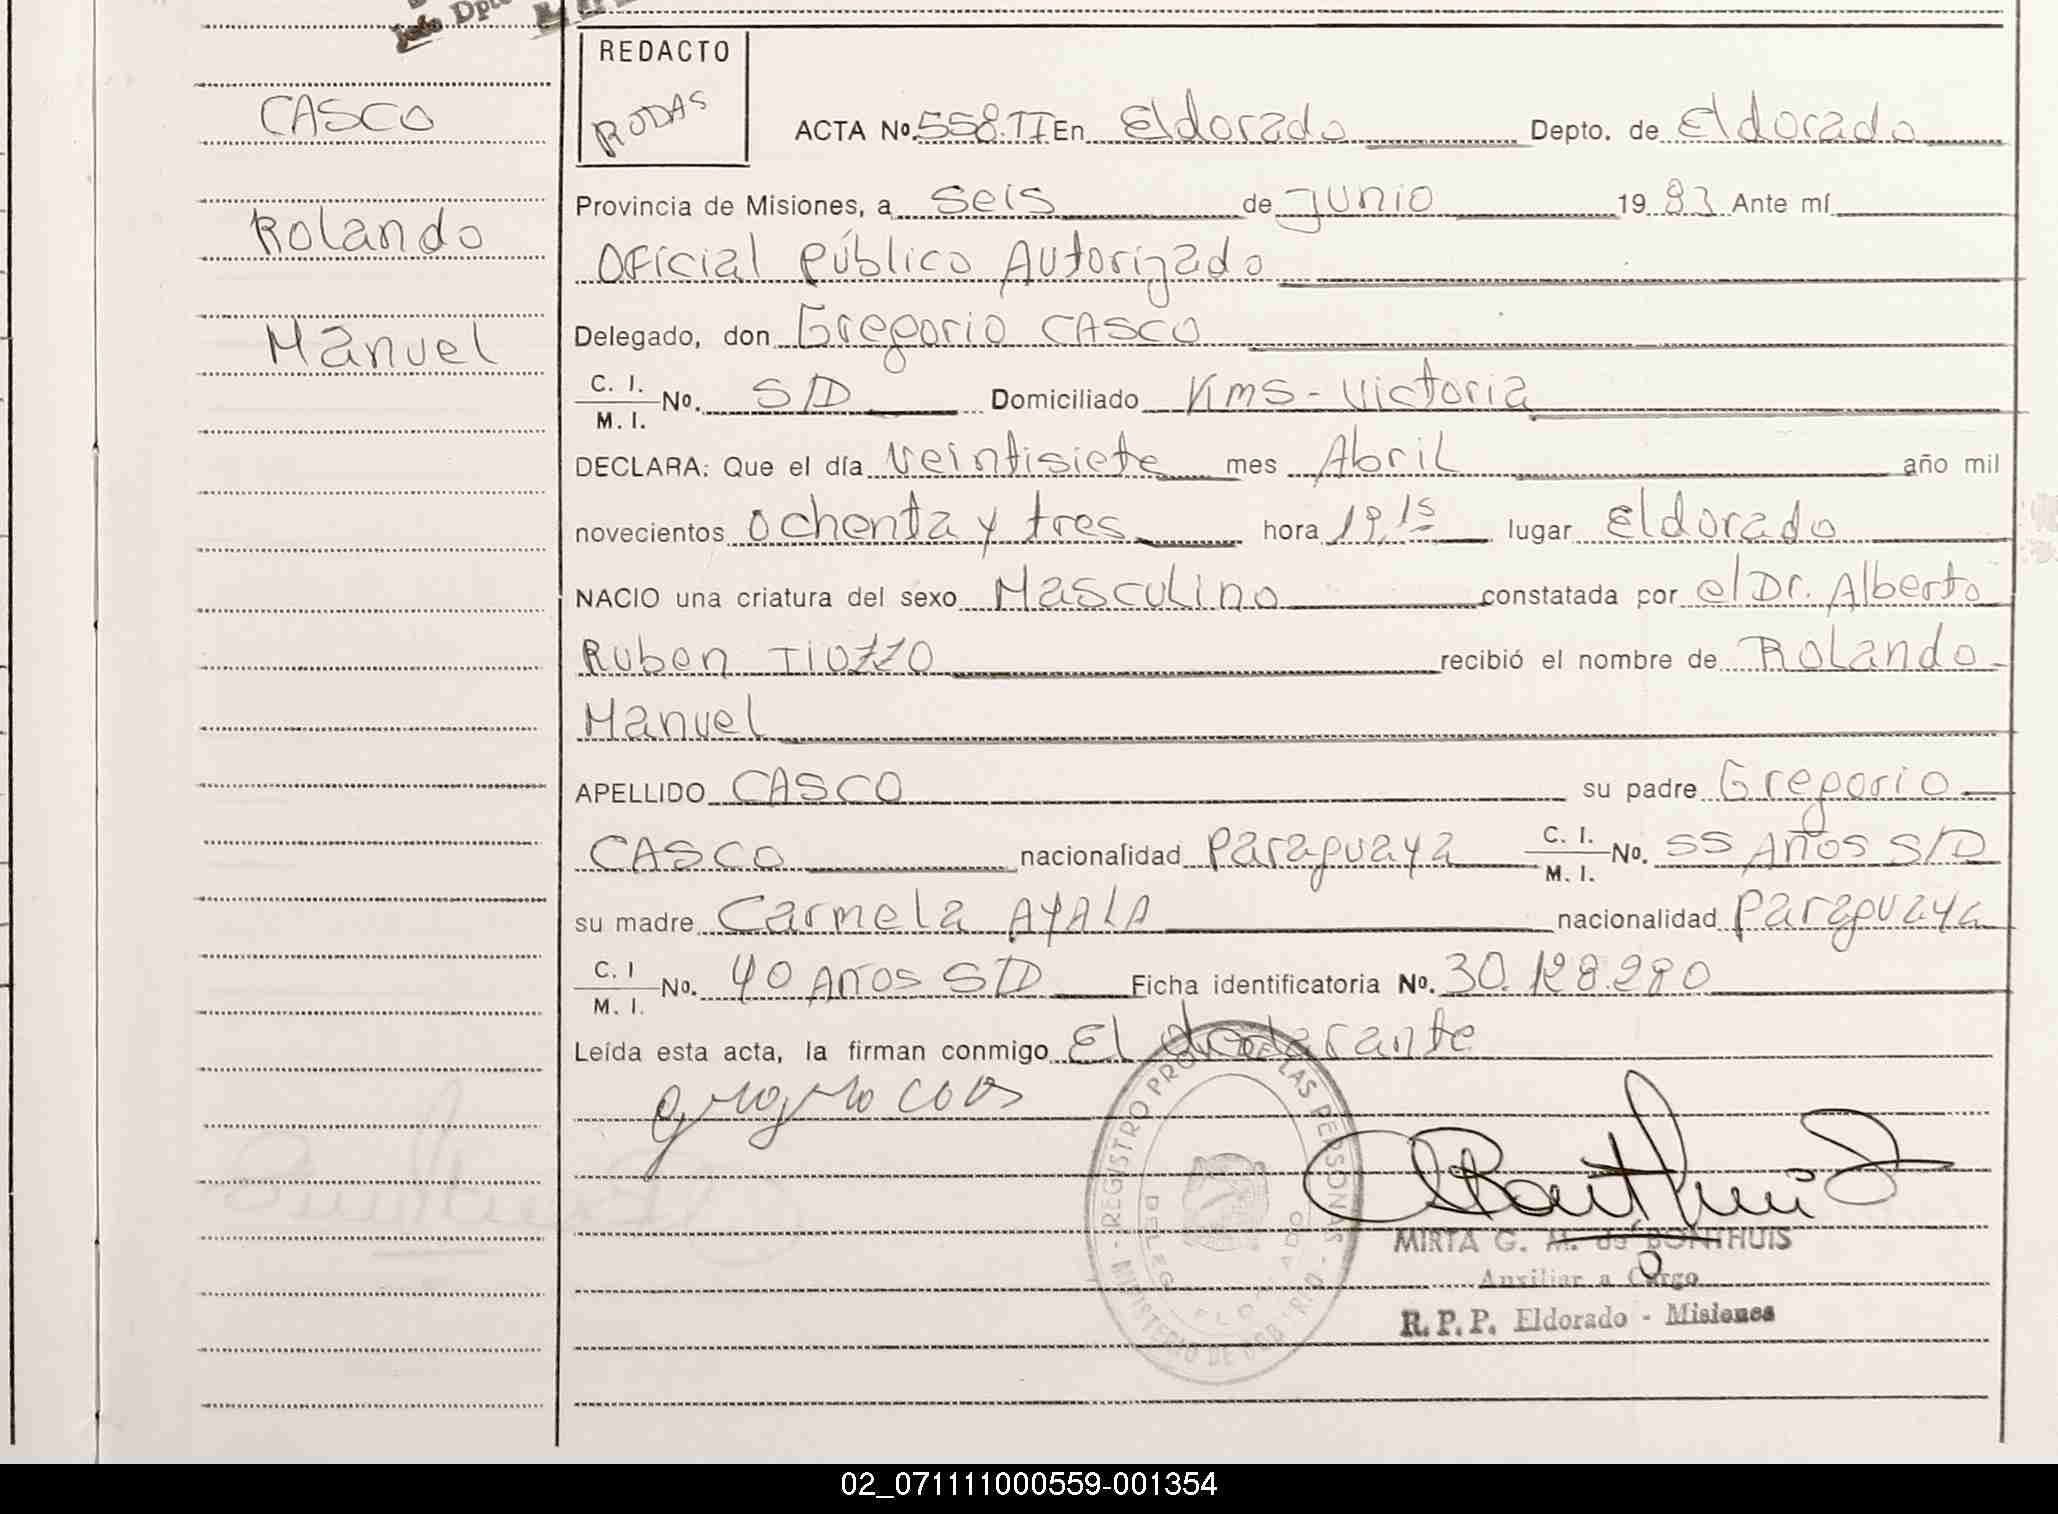 Jefe Dpto.
REDACTO
RODAS
CASCO
Rolando
Manuel
ACTA No. 558.TI En Eldorado Depto. de Eldorado
Provincia de Misiones, a seis de junio 1983 Ante mí
Oficial Público Autorizado
Delegado, don Gregorio CASCO
C. I. M. I. No. S/D Domiciliado Kms - Victoria
DECLARA: Que el día veintisiete mes Abril año mil
novecientos ochenta y tres hora 19,15 lugar Eldorado
NACIO una criatura del sexo Masculino constatada por el Dr. Alberto
Ruben TIOZZO recibió el nombre de Rolando
Manuel
APELLIDO CASCO su padre Gregorio
CASCO nacionalidad Paraguaya C. I. M. I. No. 55 Años S/D
su madre Carmela AYALA nacionalidad Paraguaya
C. I M. I. No. 40 Años S/D Ficha identificatoria No. 30.128.290
Leída esta acta, la firman conmigo El declarante
REGISTRO PROV. DE LAS PERSONAS
MINISTERIO DE GOB
MIRTA G. M. de BONTHUIS
Auxiliar a Cargo
R. P. P. Eldorado - Misiones
02_071111000559-001354